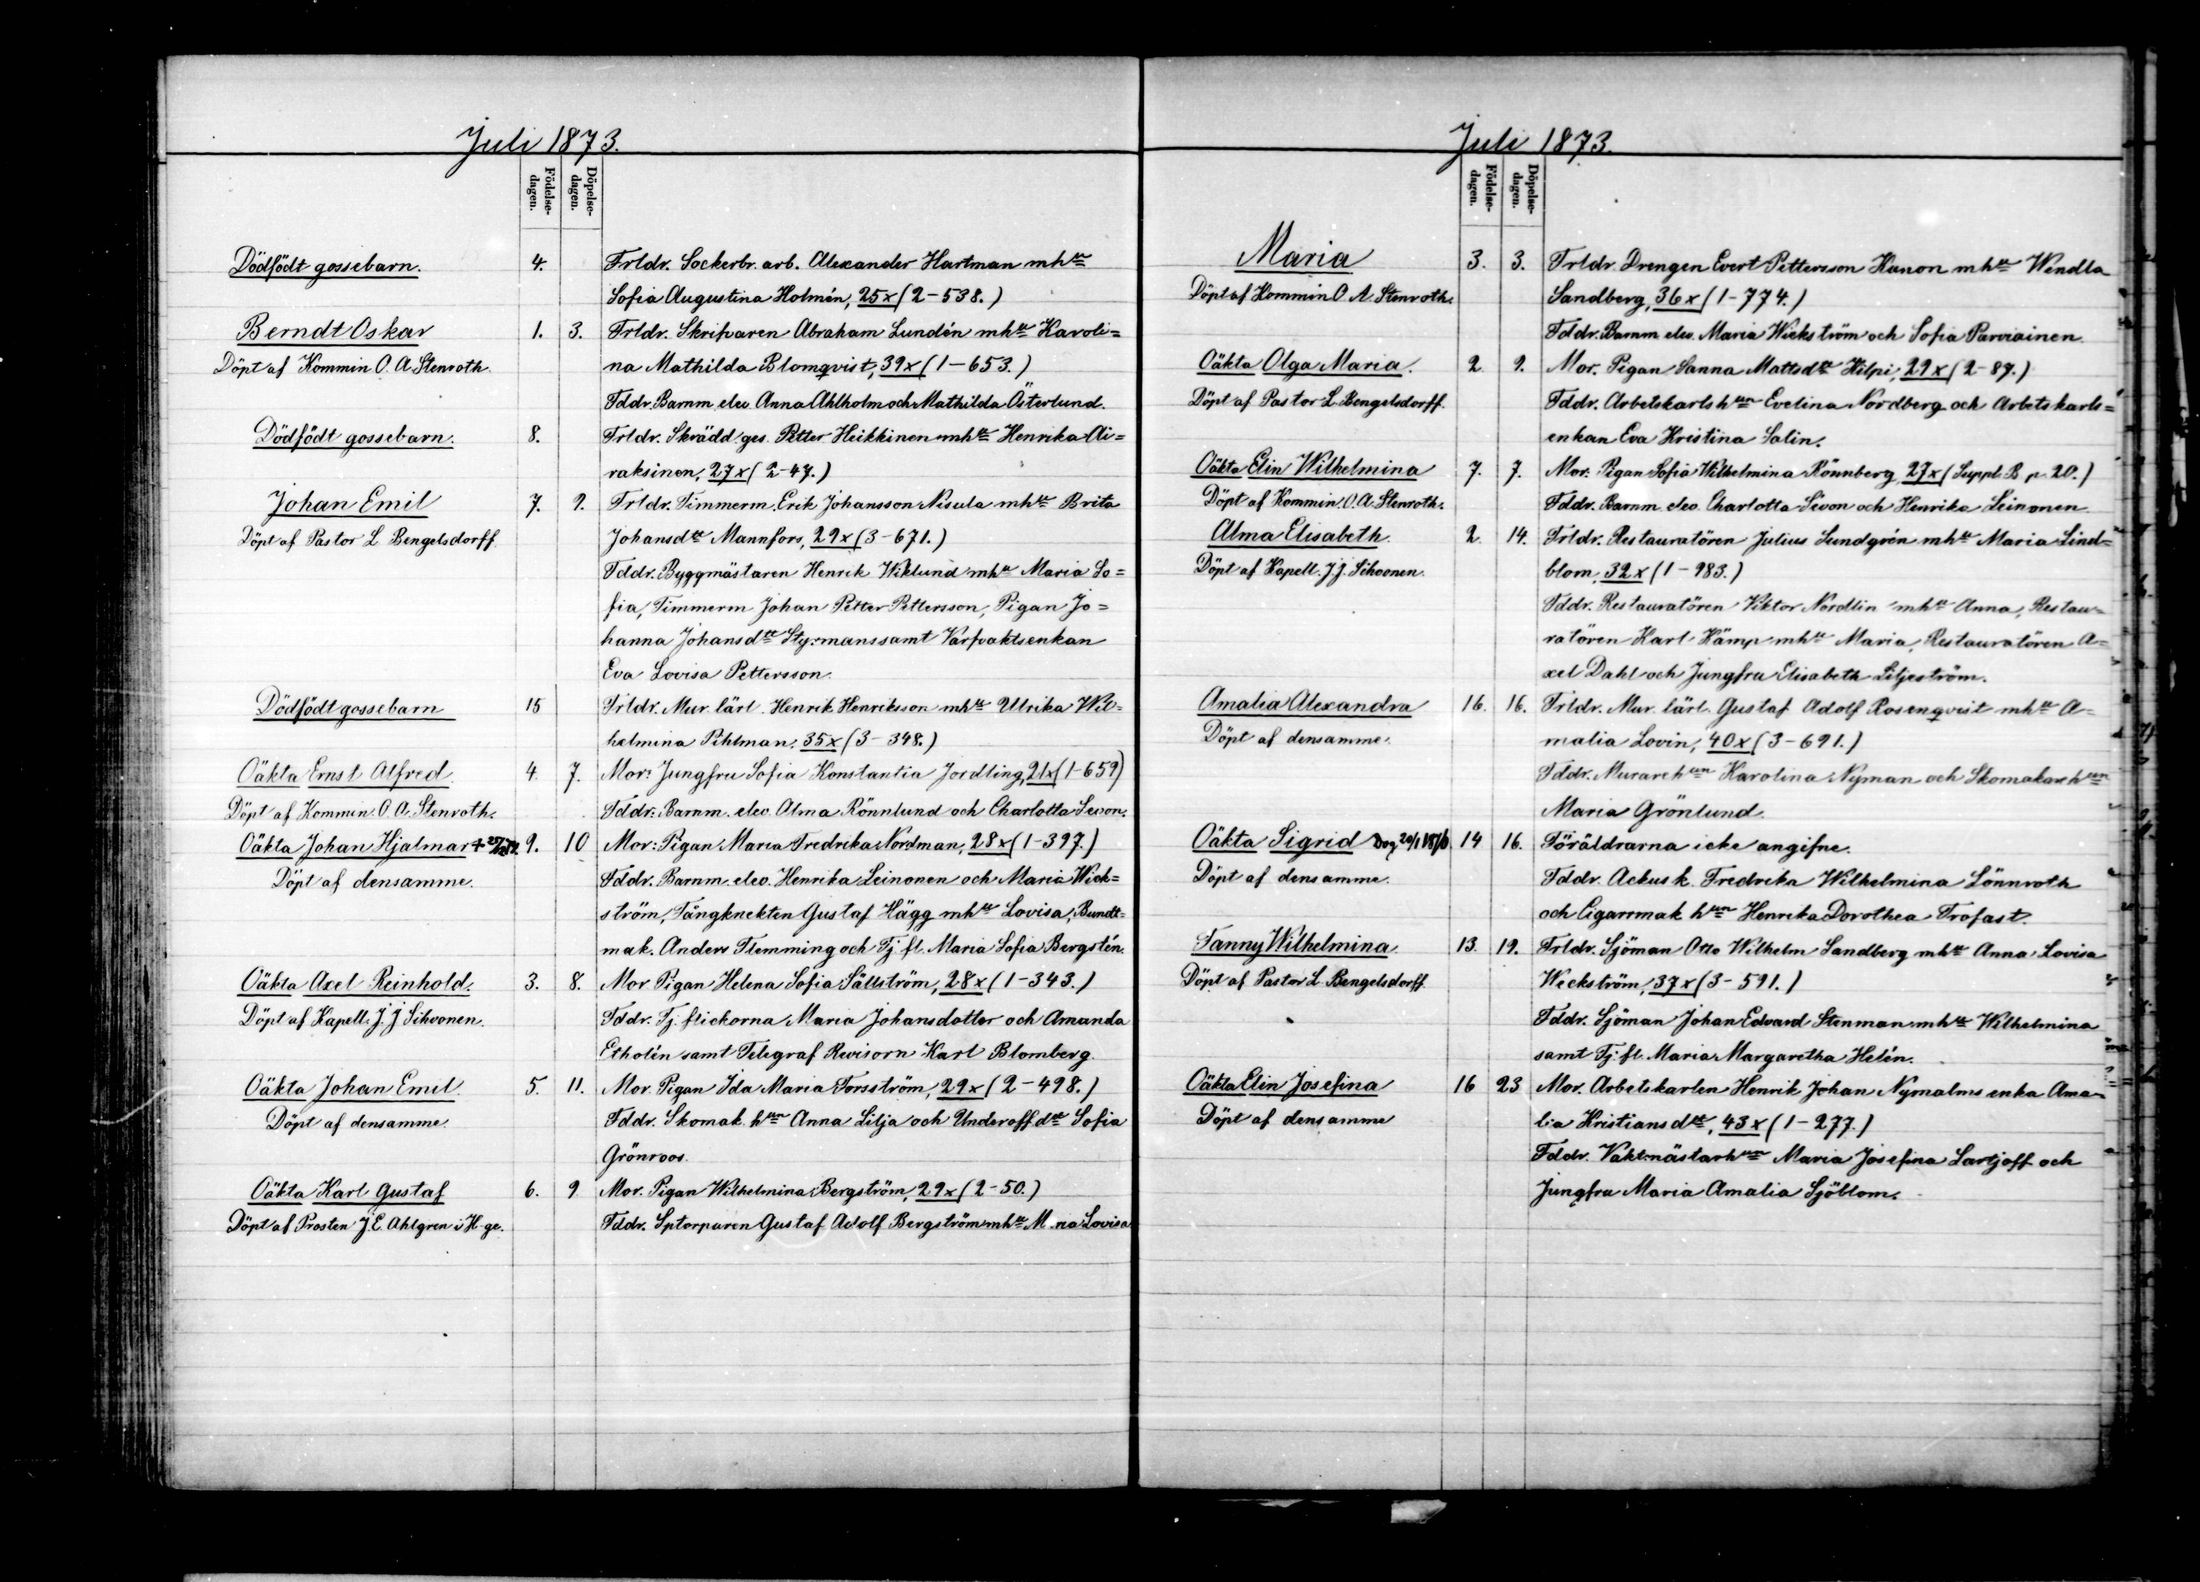 Juli 1873.
Födelse-dagen.
Döpelse-dagen.
Dödfödt gossebarn. 4. Frldr. Sockerbr. arb. Alexander Hartman mhu
Sofia Augustina Holmén, 25 x (2-538.)
Berndt Oskar 1. 3. Frldr. Skrifvaren Abraham Lundén mhu Karoli=
Döpt af Kommin O. A. Stenroth. na Mathilda Blomqvist, 39 x (1-653.)
Fddr. Barnm. elev. Anna Ahlholm och Mathilda Österlund.
Dödfödt gossebarn. 8. Frldr. Skrädd. ges. Petter Heikkinen mhu Henrika Ai=
raksinen, 27 x (2-47.)
Johan Emil 7. 9. Frldr. Timmerm. Erik Johansson Nisula mhu Brita
Döpt af Pastor L Bengelsdorff Johansdtr Mannfors, 29 x (3-671.)
Fddr. Byggmästaren Henrik Wiklund mhu Maria So=
fia, Timmerm Johan Petter Pettersson, Pigan Jo=
hanna Johansdtr Styrmans samt Varfvaktsenkan
Eva Lovisa Pettersson.
Dödfödt gossebarn 15 Frldr. Mur. lärl. Henrik Henriksson mhu Ulrika Wil=
helmina Pihlman, 35 x (3-348.)
Oäkta Ernst Alfred. 4. 7. Mor: Jungfru Sofia Konstantia Jordling, 21 x (1-659)
Döpt af Kommin. O. A. Stenroth. Fddr: Barnm. elev. Alma Rönnlund och Charlotta Sevon.
Oäkta Johan Hjalmar + 9. 10 Mor: Pigan Maria Fredrika Nordman, 28 x (1-397.)
Döpt af densamme. Fddr. Barnm. elev. Henrika Leinonen och Maria Wick=
ström, Fångknekten Gustaf Hägg mhu Lovisa, Bundt=
mak. Anders Flemming och Tj. fl. Maria Sofia Bergstén.
Oäkta Axel Reinhold. 3. 8. Mor Pigan Helena Sofia Sällström, 28 x (1-343.)
Döpt af Kapell. J. J Sihvonen. Fddr. Tj. flickorna Maria Johansdotter och Amanda
Etholén samt Telegraf Revisorn Karl Blomberg.
Oäkta Johan Emil. 5. 11. Mor. Pigan Ida Maria Forsström, 29 x (2-498.)
Döpt af densamme. Fddr. Skomak. hun Anna Lilja och Underoff. dtr Sofia
Grönroos.
Oäkta Karl Gustaf 6. 9 Mor. Pigan Wilhelmina Bergström, 29 x (2-50.)
Döpt af Prosten J. E. Ahlgren i H-ge. Fddr. Sptorparen Gustaf Adolf Bergström mhu Lovisa
Juli 1873.
Födelse-dagen.
Döpelse-dagen.
Maria 3. 3. Frldr. Drengen Evert Pettersson Kanon mhu Wendla
Döpt af Kommin O. A. Stenroth. Sandberg, 36 x (1-774.)
Fddr. Barnm. elev. Maria Wickström och Sofia Parviainen.
Oäkta Olga Maria. 2. 9. Mor. Pigan Sanna Mattsdtr Hilpi, 29 x (2-87.)
Döpt af Pastor L Bengelsdorff. Fddr. Arbetskarls hun Evelina Nordberg och Arbetskarls=
enkan Eva Kristina Salin.
Oäkta Elin Wilhelmina 7. 7. Mor. Pigan Sofia Wilhelmina Rönnberg, 27 x (Suppl. B p. 20.)
Döpt af Kommin. O. A. Stenroth. Fddr. Barnm. elev. Charlotta Sevon och Henrika Leinonen
Alma Elisabeth. 2. 14. Frldr. Restauratören Julius Sundgrén mhu Maria Lind=
Döpt af Kapell. J. J. Sihvonen. blom, 32 x (1-983.)
Fddr. Restauratören Viktor Nordlin mhu Anna, Restau=
ratören Karl Kämp mhu Maria, Restauratören A=
xel Dahl och Jungfru Elisabeth Liljeström.
Amalia Alexandra 16. 16. Frldr. Mur. lärl. Gustaf Adolf Rosenqvist mhu A=
Döpt af densamme. malia Lovin, 40 x (3-691.)
Fddr. Murarehun Karolina Nyman och Skomakarehun
Maria Grönlund.
Oäkta Sigrid 14 16. Föräldrarna icke angifne.
Döpt af densamme. Fddr. Ackusk. Fredrika Wilhelmina Lönnroth
och Cigarrmak hun Henrika Dorothea Trofast.
Fanny Wilhelmina. 13. 19. Frldr. Sjöman Otto Wilhelm Sandberg mhu Anna Lovisa
Döpt af Pastor L. Bengelsdorff. Weckström, 37 x (3-591.)
Fddr. Sjöman Johan Edvard Stenman mhu Wilhelmina
samt Tj. fl. Maria Margaretha Helén.
Oäkta Elin Josefina 16 23 Mor. Arbetskarlen Henrik Johan Nymalms enka Ama=
Döpt af densamme lia Kristiansdtr, 43 x (1-277.)
Fddr. Vaktmästarhun Maria Josefina Lartjoff och
Jungfru Maria Amalia Sjöblom.